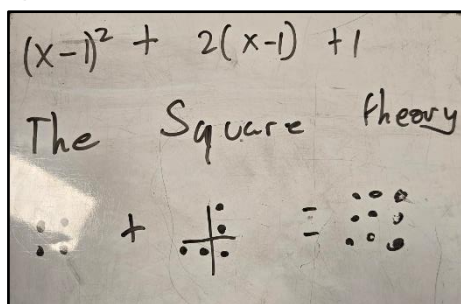 (x-1)² + 2(x-1) +1
The Square theory
+ =